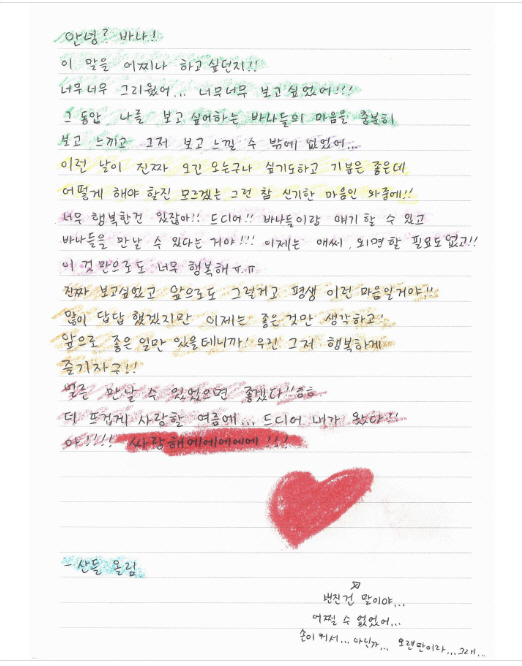 안녕? 바나!
이 말을 어찌나 하고 싶던지!!
너무너무 그리웠어... 너무너무 보고싶었어!!!
그 동안 나를 보고 싶어하는 바나들의 마음을 충분히
보고 느끼고 그저 보고 느낄 수 밖에 없었어...
이런 날이 진짜 오긴 오는구나 싶기도하고 기분은 좋은데
어떻게 해야 할진 모르겠는 그런 참 신기한 마음인 와중에!!
너무 행복한건 있잖아!! 드디어!! 바나들이랑 얘기 할 수 있고
바나들을 만날 수 있다는 거야!!! 이제는 애써, 외면할 필요도 없고!!
이 것 만으로도 너무 행복해 ㅠ.ㅠ
진짜 보고싶었고 앞으로도 그럴거고 평생 이런 마음일거야!!
많이 답답 했겠지만 이제는 좋은 것만 생각하고!
앞으로 좋은 일만 있을테니까! 우린 그저 행복하게
즐기자구!!
얼른 만날 수 있었으면 좋겠다!! ㅎㅎ
더 뜨겁게 사랑할 여름에... 드디어 내가 왔다!!
아!!!! 싸랑해에에에에에!!!
- 산들 올림
번진건 말이야...
어쩔 수 없었어...
손이 커서... 아닌가... 오랜만이라... 그래...